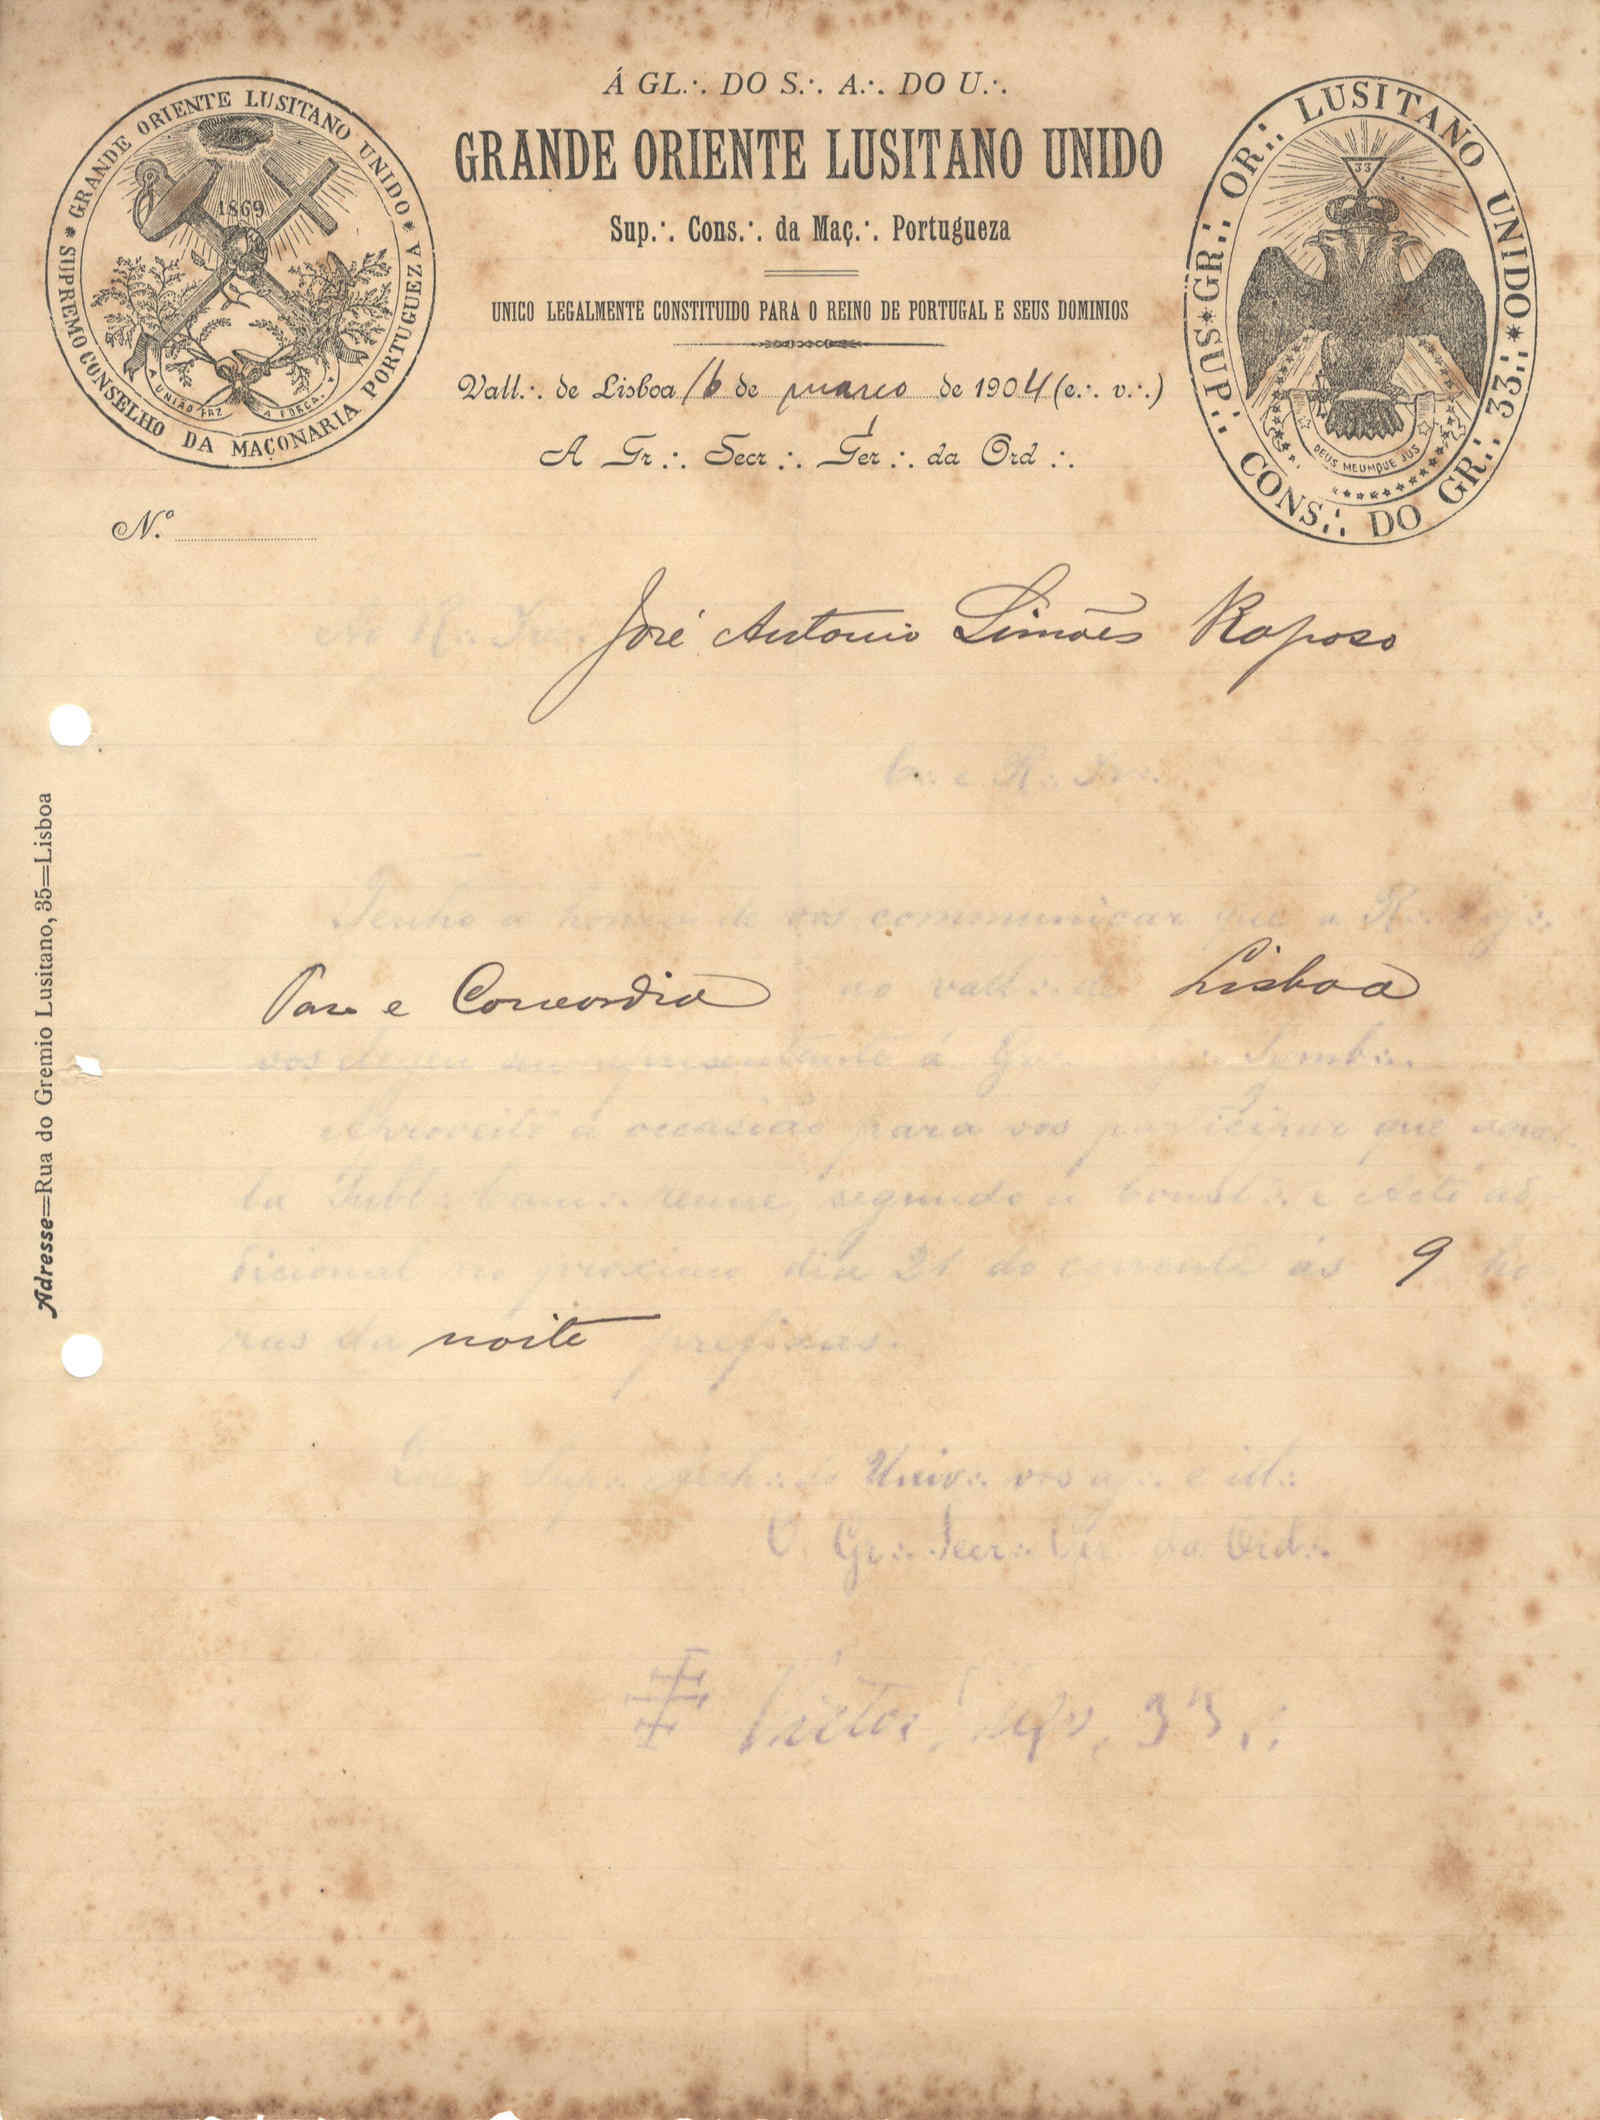 Á GL.·. DO S.·. A.·. DO U.·.
GRANDE ORIENTE LUSITANO UNIDO
Sup.·. Cons.·. da Maç.·. Portugueza
UNICO LEGALMENTE CONSTITUIDO PARA O REINO DE PORTUGAL E SEUS DOMINIOS
Vall.·. de Lisboa 16 de março de 1904 (e.·. v.·.)
A Gr.·. Secr.·. Ger.·. da Ord.·.
GRANDE ORIENTE LUSITANO UNIDO * SUPREMO CONSELHO DA MAÇONARIA PORTUGUEZA *
1869
A UNIÃO FAZ A FORÇA.
SUP.·. CONS.·. DO GR.·. 33.·. * GR.·. OR.·. LUSITANO UNIDO *
33
DEUS MEUMQUE JUS
N.º
José Antonio Simões Raposo
C.·. e R.·. Ir.·.
Tenho a honra de vos communicar que a R.·. Loj.·.
Paz e Concordia ao vall.·. de Lisboa
vos elegeu seu representante á Gr.·. Symb.·.
Aproveito a occasião para vos participar que
ta Subl.·. Cam.·. reune, segundo a Const.·. e Acto ad-
dicional no proximo dia 21 do corrente ás 9 ho-
ras da noite prefixas.
Que o Sup.·. Arch.·. do Univ.·. vos aj.·. e ill.·.
O Gr.·. Secr.·. Ger.·. da Ord.·.
Victor 33.·.
Adresse=Rua do Gremio Lusitano, 35=Lisboa